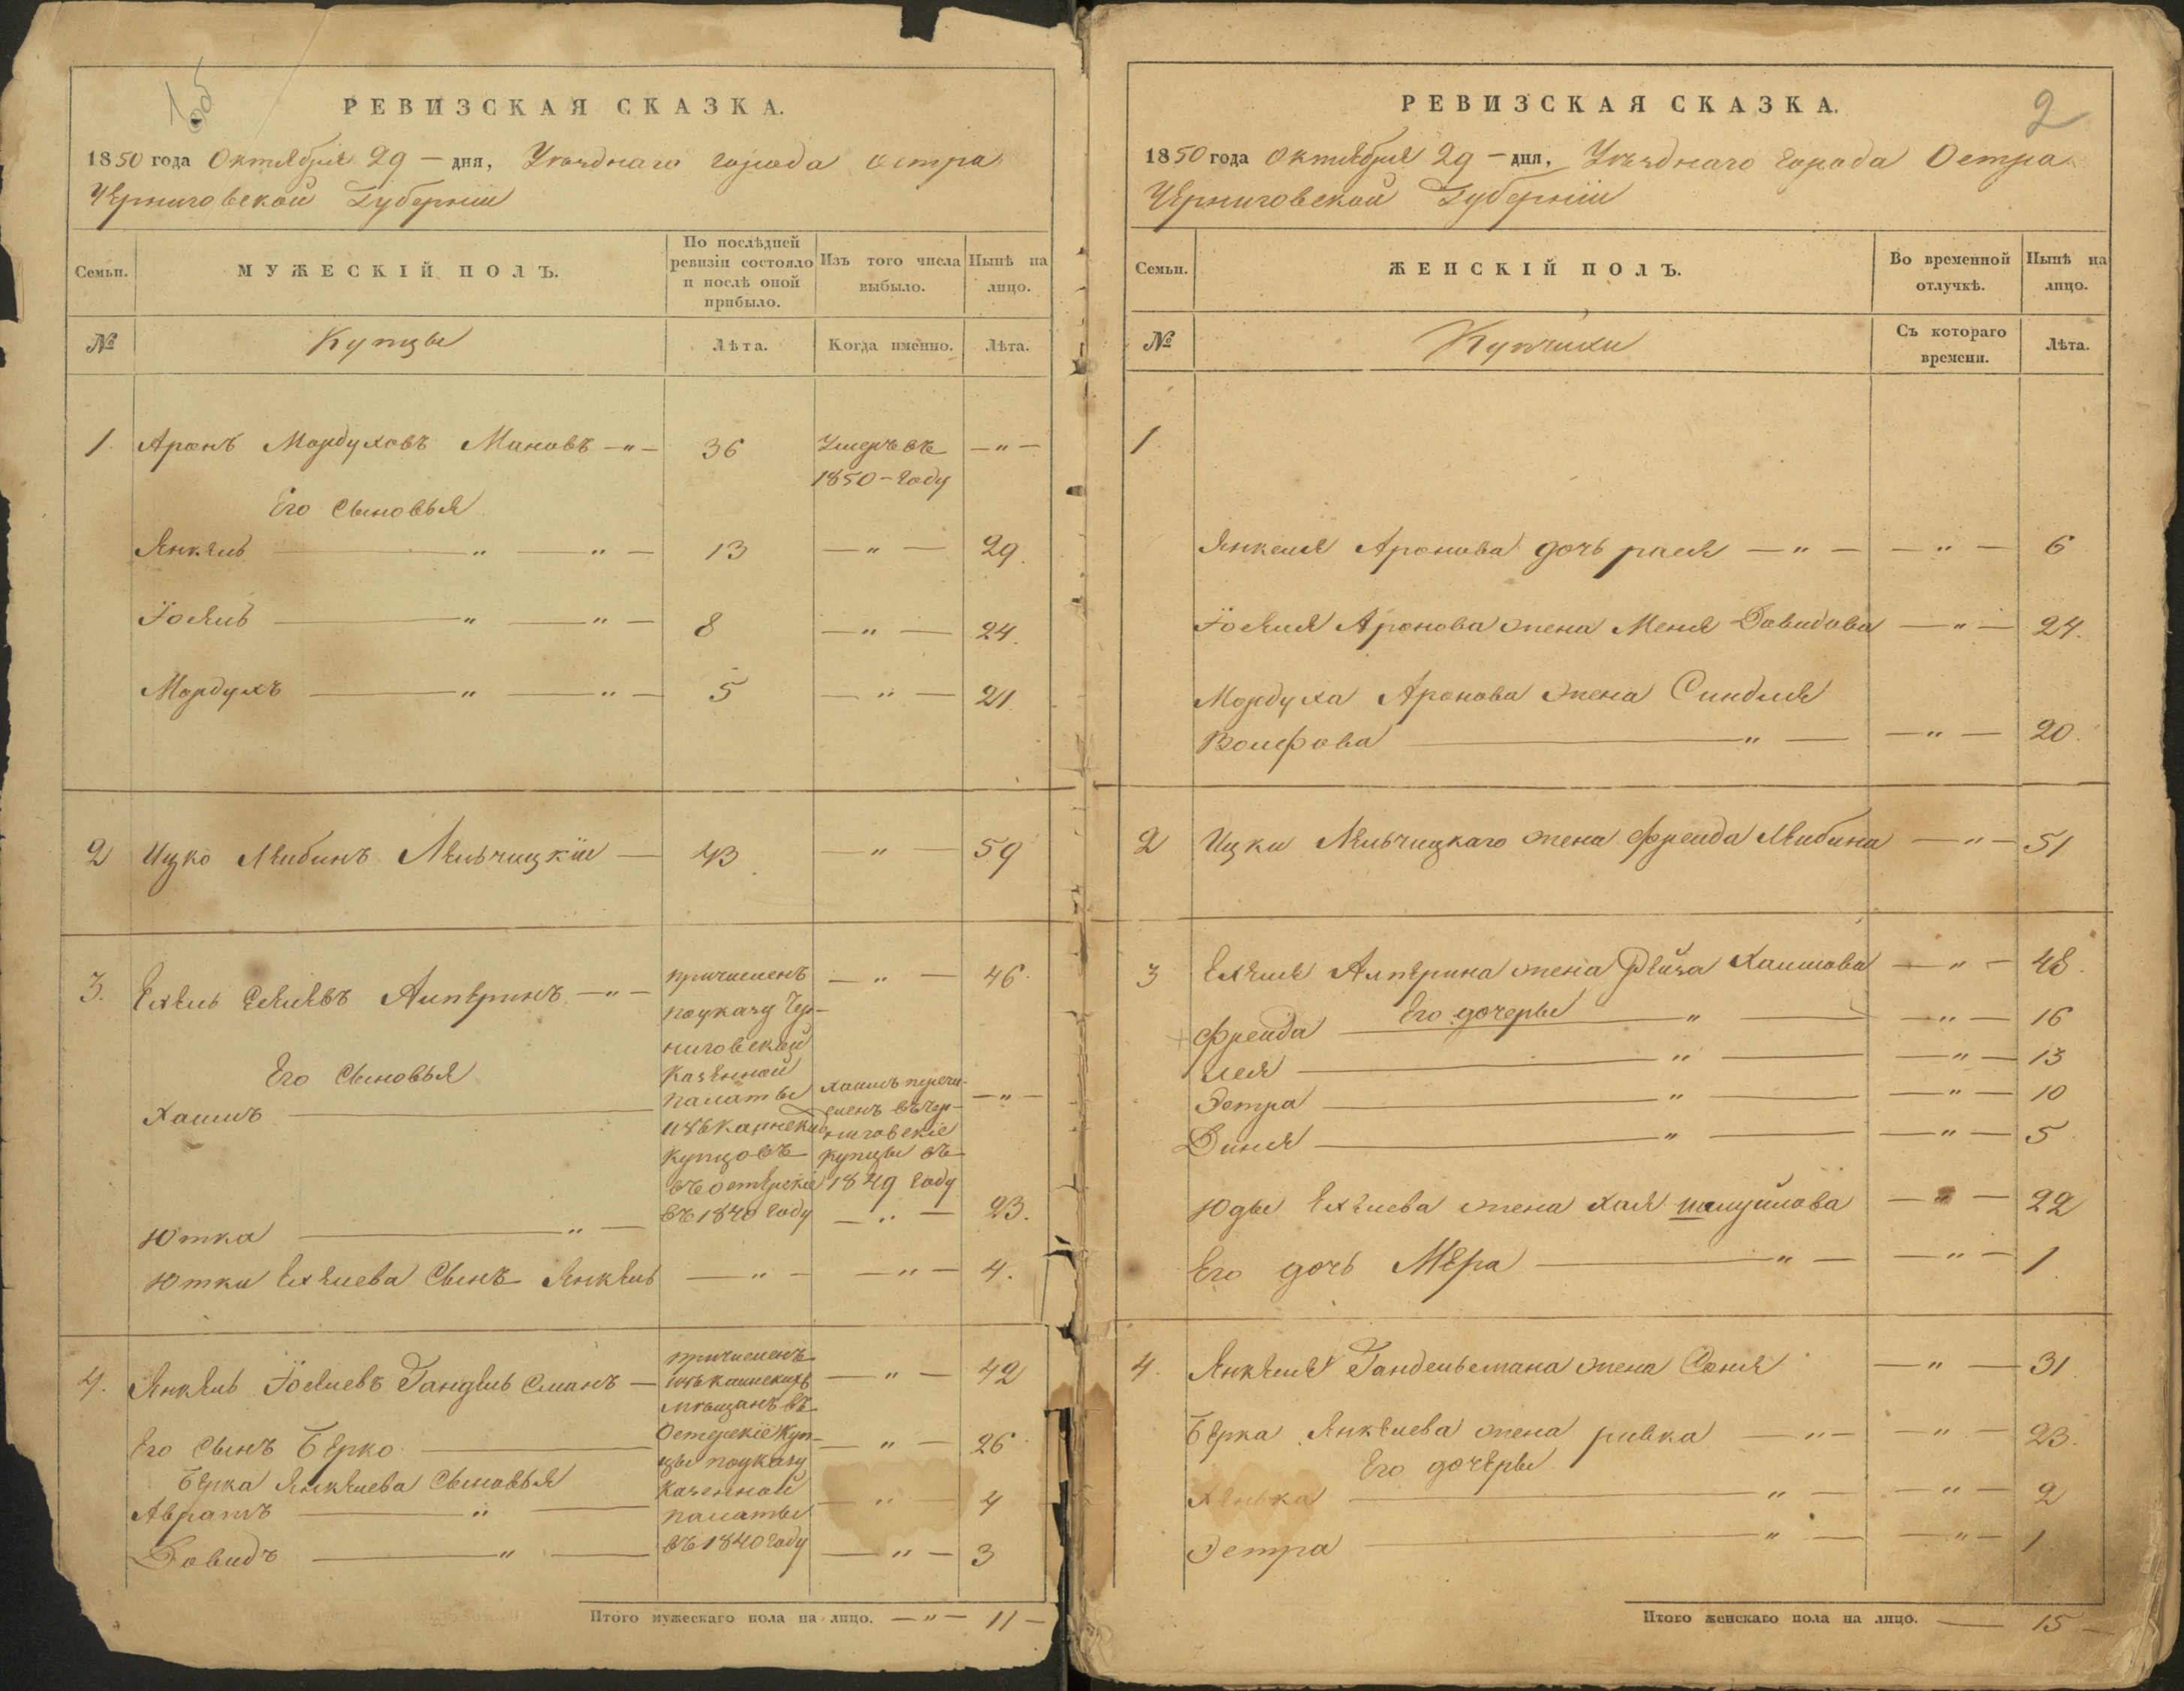 РЕВИЗСКАЯ СКАЗКА.
1850 года Октября 29 – дня, Уезднаго города Остра
Черниговской Губерніи
Семьи.
МУЖЕСКІЙ ПОЛЪ.
По послѣдней
ревизіи состояло
и послѣ оной
прибыло.
Изъ того числа
выбыло.
Нынѣ на
лицо.
№
Купцы
Лѣта.
Когда именно.
Лѣта.
1. Аронъ Мордуховъ Мановъ –„– 36 Умеръ въ –„–
1850 – году
Его Сыновья
Янкель — „ — „ — 13 — „ — 29.
Іосель — „ — „ — 8 — „ — 24.
Мордухъ — „ — „ — 5 — „ — 21.
2 Ицко Лейбинъ Мельчицкій — 43 — „ — 59
3. Ехель Алперинъ –„– причисленъ — „ — 46.
по указу Чер-
ниговской
Его Сыновья Казенной
Хаимъ — палаты Хаимъ перечи- –„–
сленъ въ Чер-
ниговскіе
купцовъ купцы въ
въ Остерскіе 1849 году
въ 1840 году
Ютка — „ — — „ — 23.
Ютки Ехелева Сынъ Янкель — „ – — „ — 4.
4. Янкель Іоселевъ Гандельсманъ — причисленъ — „ — 42
мещанъ въ
Остерскіе Куп-
Его Сынъ Берко — — „ — 26
цы по указу
Берка Янкелева Сыновья Казенной
Аврамъ — „ — палаты — „ — 4
Довидъ — „ — въ 1840 году — „ — 3
Итого мужескаго пола на лицо. —„— 11 –
РЕВИЗСКАЯ СКАЗКА.
2
1850 года Октября 29 – дня, Уезднаго города Остра
Черниговской Губерніи
Семьи.
ЖЕНСКІЙ ПОЛЪ.
Во временной
отлучкѣ.
Нынѣ на
лицо.
№
Купчихи
Съ котораго
времени.
Лѣта.
1.
Янкеля Аронова дочь рася — „ — — „ — 6
Іоселя Аронова жена Меня Довидова — „ — 24.
Мордуха Аронова жена Синдля
Волфова — „ — — „ — 20.
2 Ицки Мельчицкаго жена Фрейда Лейбина — „ — 51
3 Ехеля Алперина жена Рейза Хаимова — „ — 48.
Его дочеры
Фрейда — „ — — „ — 16
Лея — „ — — „ — 13
Эстра — „ — — „ — 10
Диня — „ — — „ — 5
Юды Ехелева жена Хая Шмуйлова — „ — 22
Его дочь Мера — „ — — „ — 1
4. Янкеля Гандельсмана жена Соня — „ — 31
Берка Янкелева жена ривка — „ — — „ — 23.
Его дочеры
Хенька — „ — — „ — 2
Эстра — „ — — „ — 1
Итого женскаго пола на лицо. — 15 –